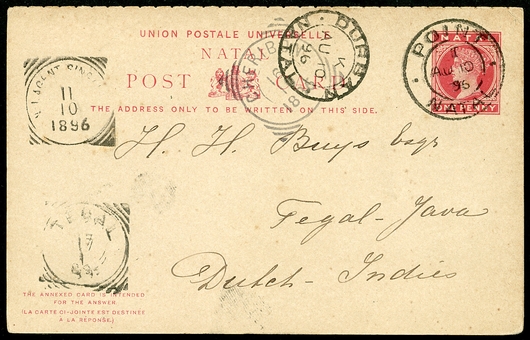 UNION POSTALE UNIVERSELLE
NATAL
POST CARD
THE ADDRESS ONLY TO BE WRITTEN ON THIS SIDE.
NATAL
PENNY
POINT
AU 10
96
NATAL
DURBAN
K
AU 10
96
NATAL
CHERIBON
N.I. AGENT SINGAP
11
10
1896
H. H. Buys Esqr
Tegal - Java
Dutch - Indies
TEGAL
THE ANNEXED CARD IS INTENDED
FOR THE ANSWER.
(LA CARTE CI-JOINTE EST DESTINÉE
À LA RÉPONSE.)